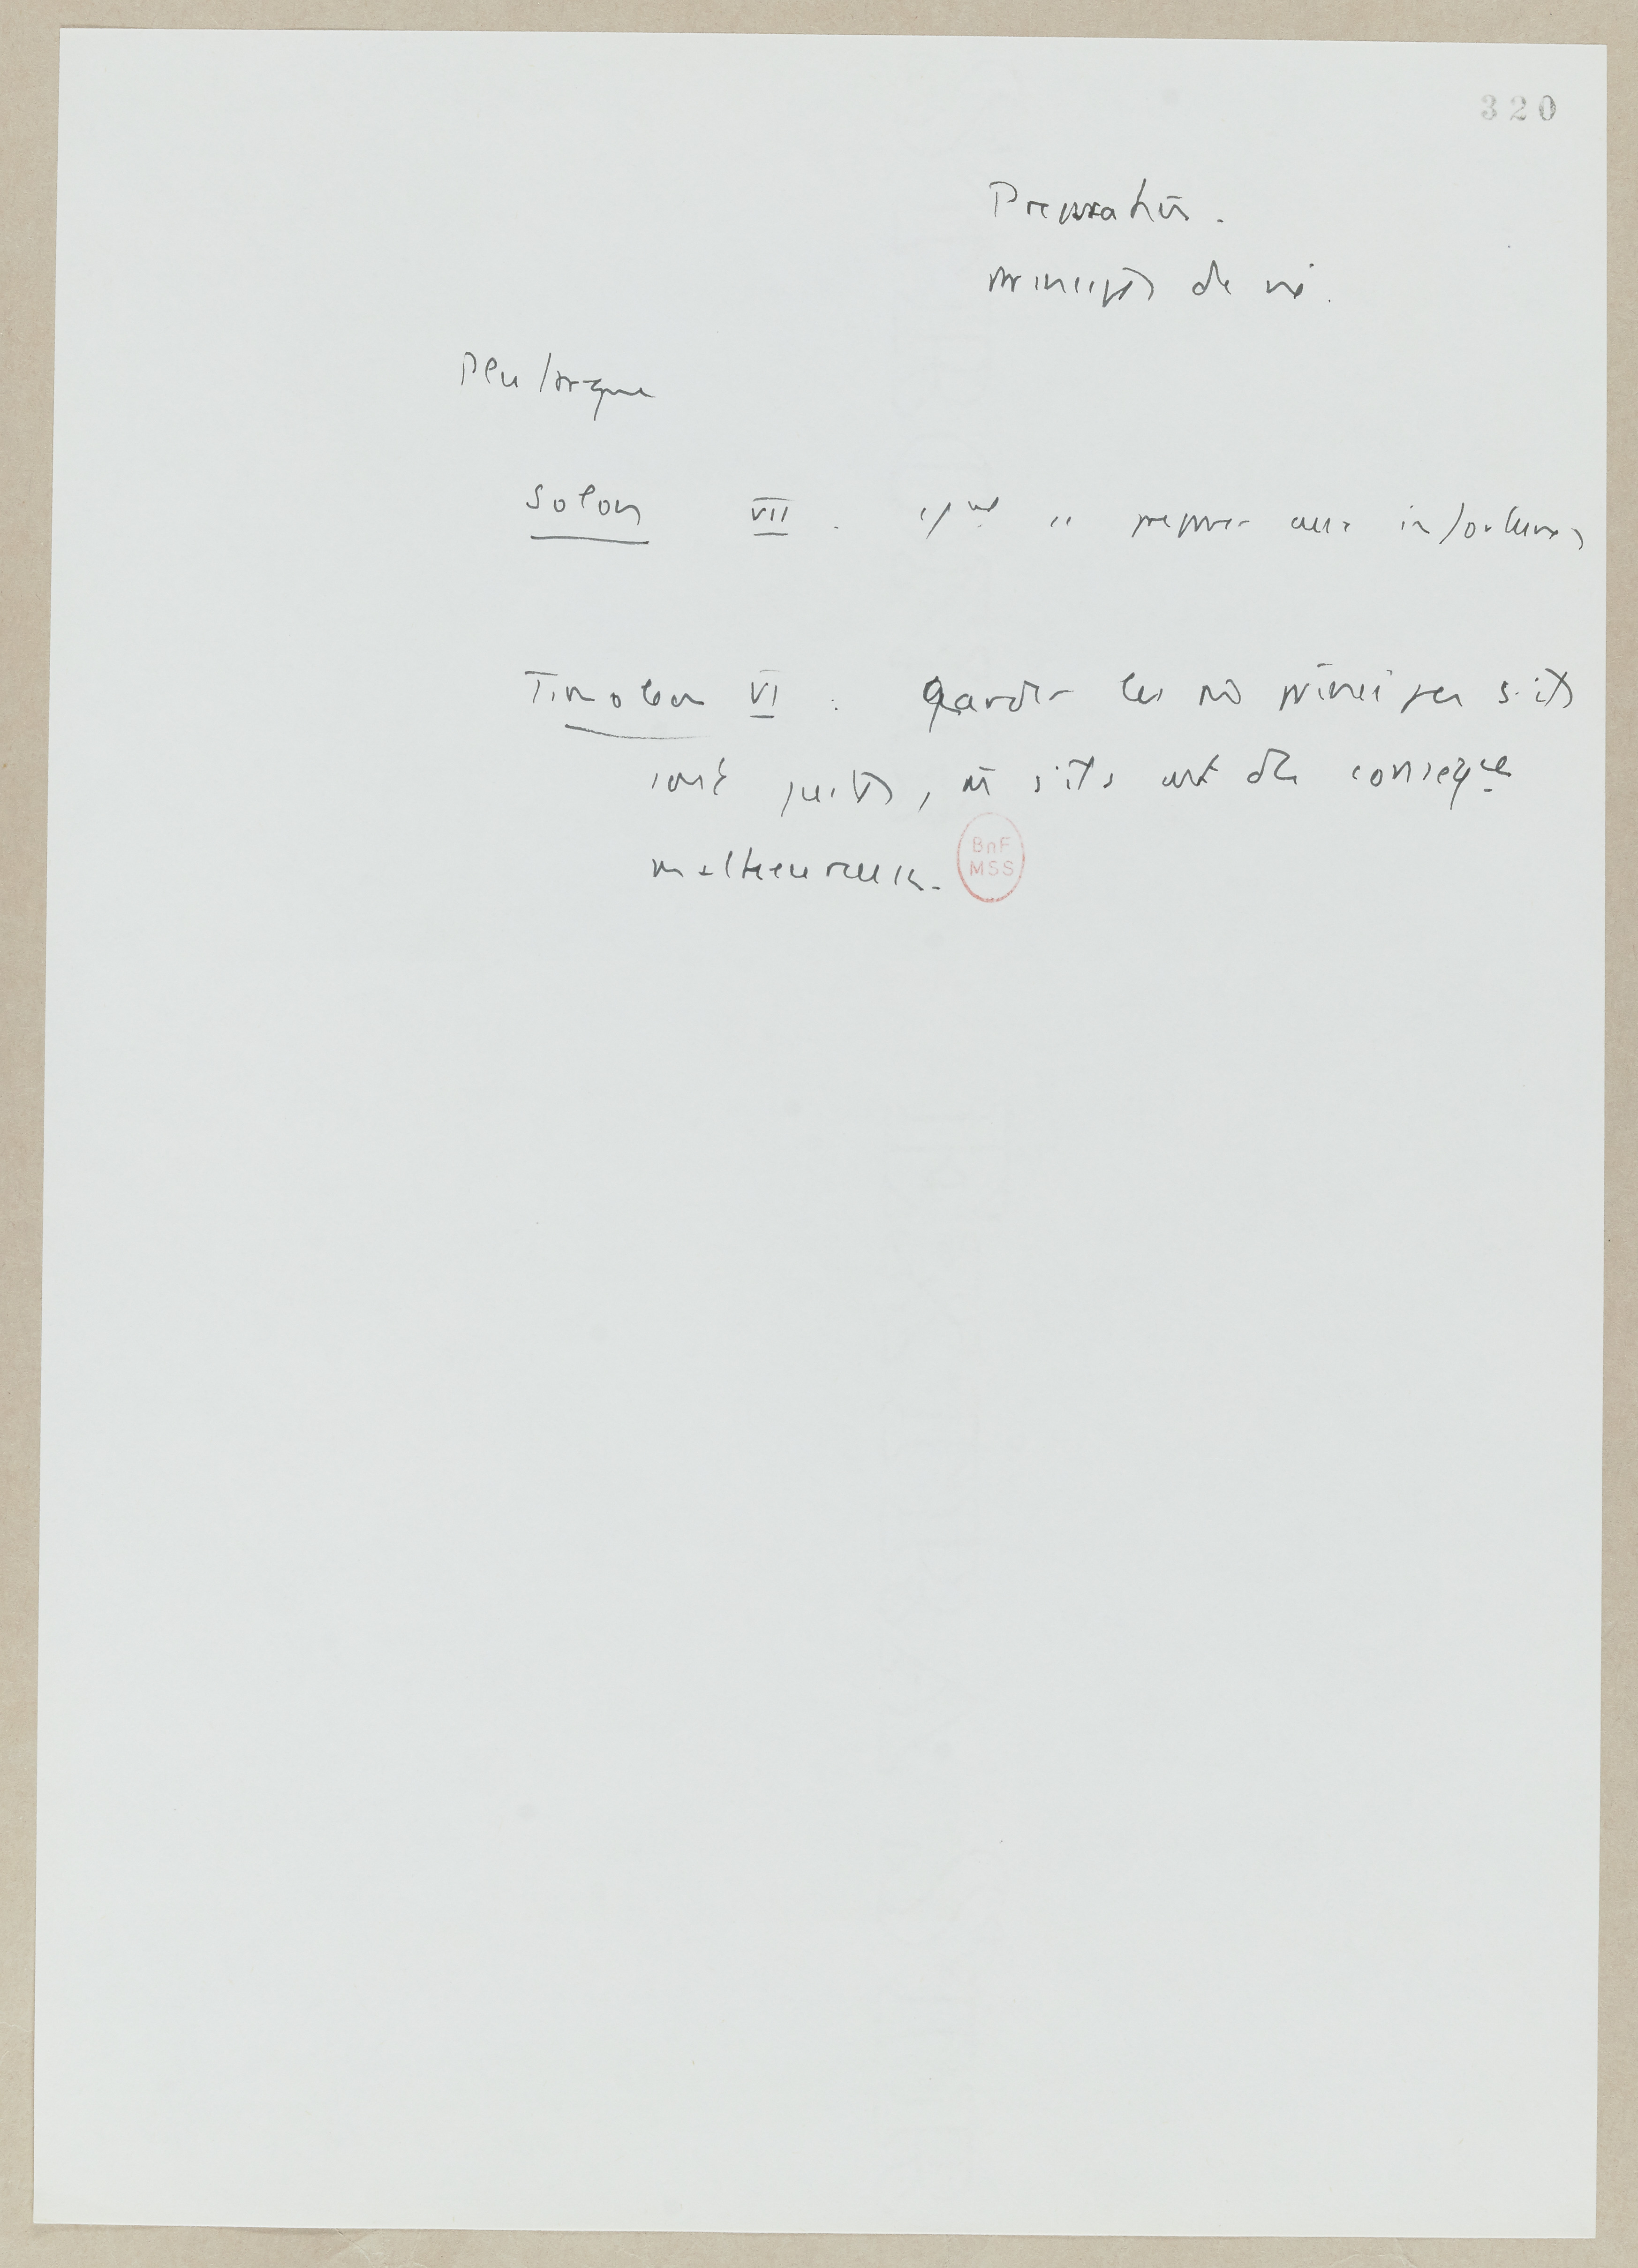 320
Preparation.
principes de vie.
Plutarque
Solon VII. préparer aux infortunes
Timoléon VI : Garder les m̂ principes s'ils
sont justes, m̂ s'ils ont des conséq^ces
malheureuses.
BnF
MSS